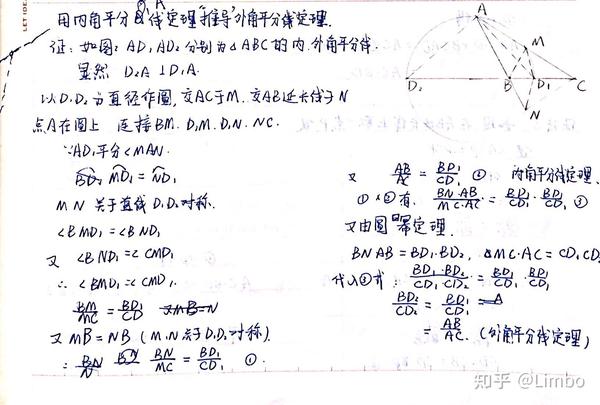 用内角平分线定理"推导"外角平分线定理.
证: 如图: AD₁ AD₂ 分别为△ABC的内.外角平分线.
显然 D₂A⊥D₁A.
以D₁D₂为直径作圆, 交AC于M. 交AB延长线于N
点A在圆上 连接BM. D₁M. D₁N. NC.
∵AD₁平分<MAN.
MD₁ = ND₁
M N 关于直线D₁D₂对称.
<BMD₁=<BND₁
又 <BND₁=<CMD₁
∴ <BMD₁=<CMD₁
BM/MC = BD₁/CD
又MB=NB (M.N关于D₁D₂对称)
BN/MC = BD₁/CD₁ ①.
又 AB/AC = BD₁/CD₁ ② 内角平分线定理
①×②有. BN·AB/MC·AC = BD₁/CD₁ · BD₁/CD₁ ③
又由圆幂定理.
BN AB=BD₁·BD₂, MC·AC=CD₁ CD₂
代入③式: BD₁·BD₂/CD₁·CD₂ = BD₁/CD₁ BD₁/CD₁
BD₂/CD₂ = BD₁/CD₁
= AB/AC. (外角平分线定理)
A
M
D₂
B
D₁
C
N
知乎 @Limbo